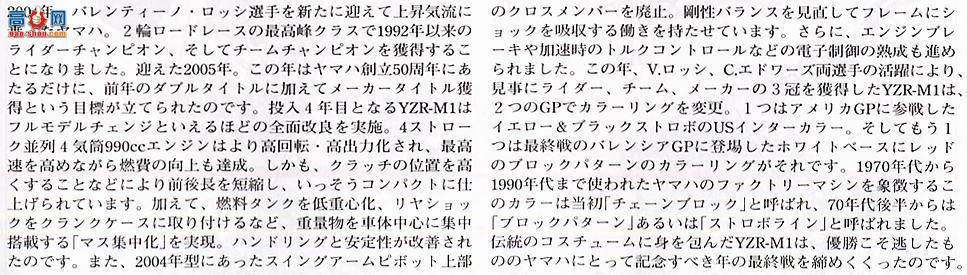 バレンティーノ・ロッシ選手を新たに迎えて上昇気流に
ヤマハ。２輪ロードレースの最高峰クラスで1992年以来の
ライダーチャンピオン、そしてチームチャンピオンを獲得するこ
とになりました。迎えた2005年。この年はヤマハ創立50周年にあ
たるだけに、前年のダブルタイトルに加えてメーカータイトル獲
得という目標が立てられたのです。投入４年目となるYZR-M1は
フルモデルチェンジといえるほどの全面改良を実施。4ストロー
ク並列４気筒990ccエンジンはより高回転・高出力化され、最高
速を高めながら燃費の向上も達成。しかも、クラッチの位置を高
くすることなどにより前後長を短縮し、いっそうコンパクトに仕
上げられています。加えて、燃料タンクを低重心化、リヤショッ
クをクランクケースに取り付けるなど、重量物を車体中心に集中
搭載する「マス集中化」を実現。ハンドリングと安定性が改善され
たのです。また、2004年型にあったスイングアームピボット上部
のクロスメンバーを廃止。剛性バランスを見直してフレームにショ
ックを吸収する働きを持たせています。さらに、エンジンブレ
ーキや加速時のトルクコントロールなどの電子制御の熟成も進め
られました。この年、V.ロッシ、C.エドワーズ両選手の活躍により、
見事にライダー、チーム、メーカーの３冠を獲得したYZR-M1は、
２つのGPでカラーリングを変更。１つはアメリカGPに参戦した
イエロー＆ブラックストロボのUSインターカラー。そしてもう１
つは最終戦のバレンシアGPに登場したホワイトベースにレッド
のブロックパターンのカラーリングがそれです。1970年代から
1990年代まで使われたヤマハのファクトリーマシンを象徴するこ
のカラーは当初「チェーンブロック」と呼ばれ、70年代後半からは
「ブロックパターン」あるいは「ストロボライン」と呼ばれました。
伝統のコスチュームに身を包んだYZR-M1は、優勝こそ逃したも
ののヤマハにとって記念すべき年の最終戦を締めくくったのです。